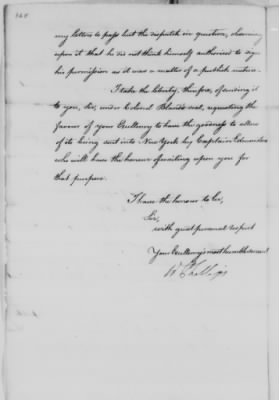 my letters to pass but the dispatch in question, observing
upon it that he did not think himself authorised to sign
his permission as it was a matter of a publick nature.
I take the liberty, therefore, of sending it
to you, Sir, under Colonel Bland's seal, requesting the
favour of your Excellency to have the goodness to allow
of its being sent into New York by Captain Edmonston
who will have the honour of waiting upon you for
that purpose.
I have the honour to be,
Sir,
with great personal respect
Your Excellency's most humble servant
W Phillips